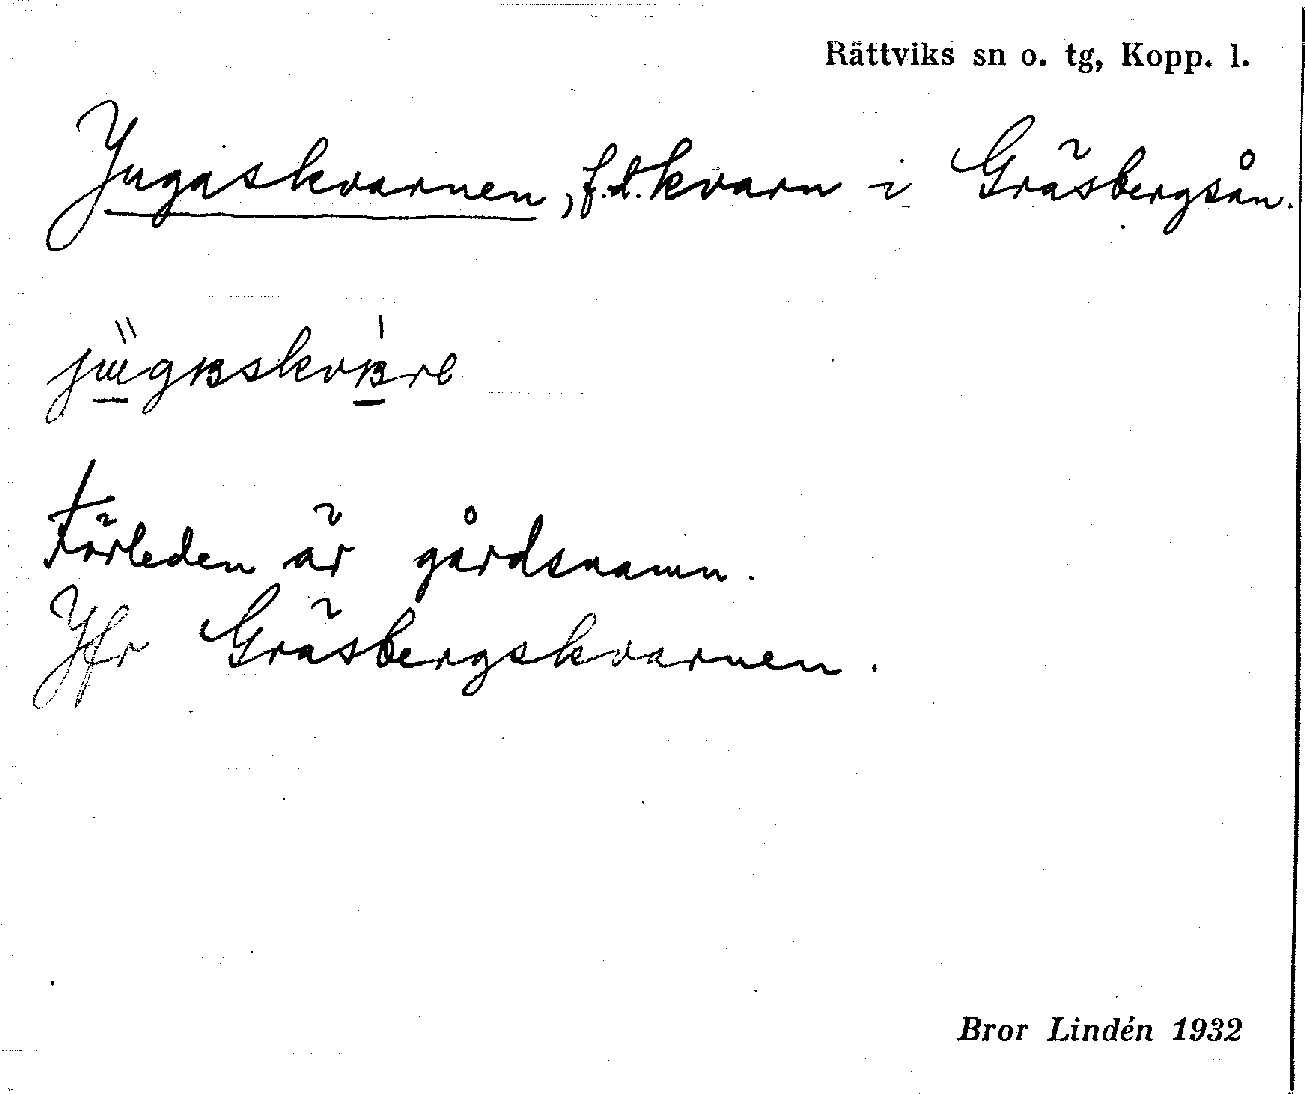 Rättviks sn o. tg, Kopp. l.
Jugaskvarnen, f.d. kvarn i Gräsbergsån.
Förleden är gårdsnamn.
Jfr Gräsbergskvarnen.
Bror Lindén 1932